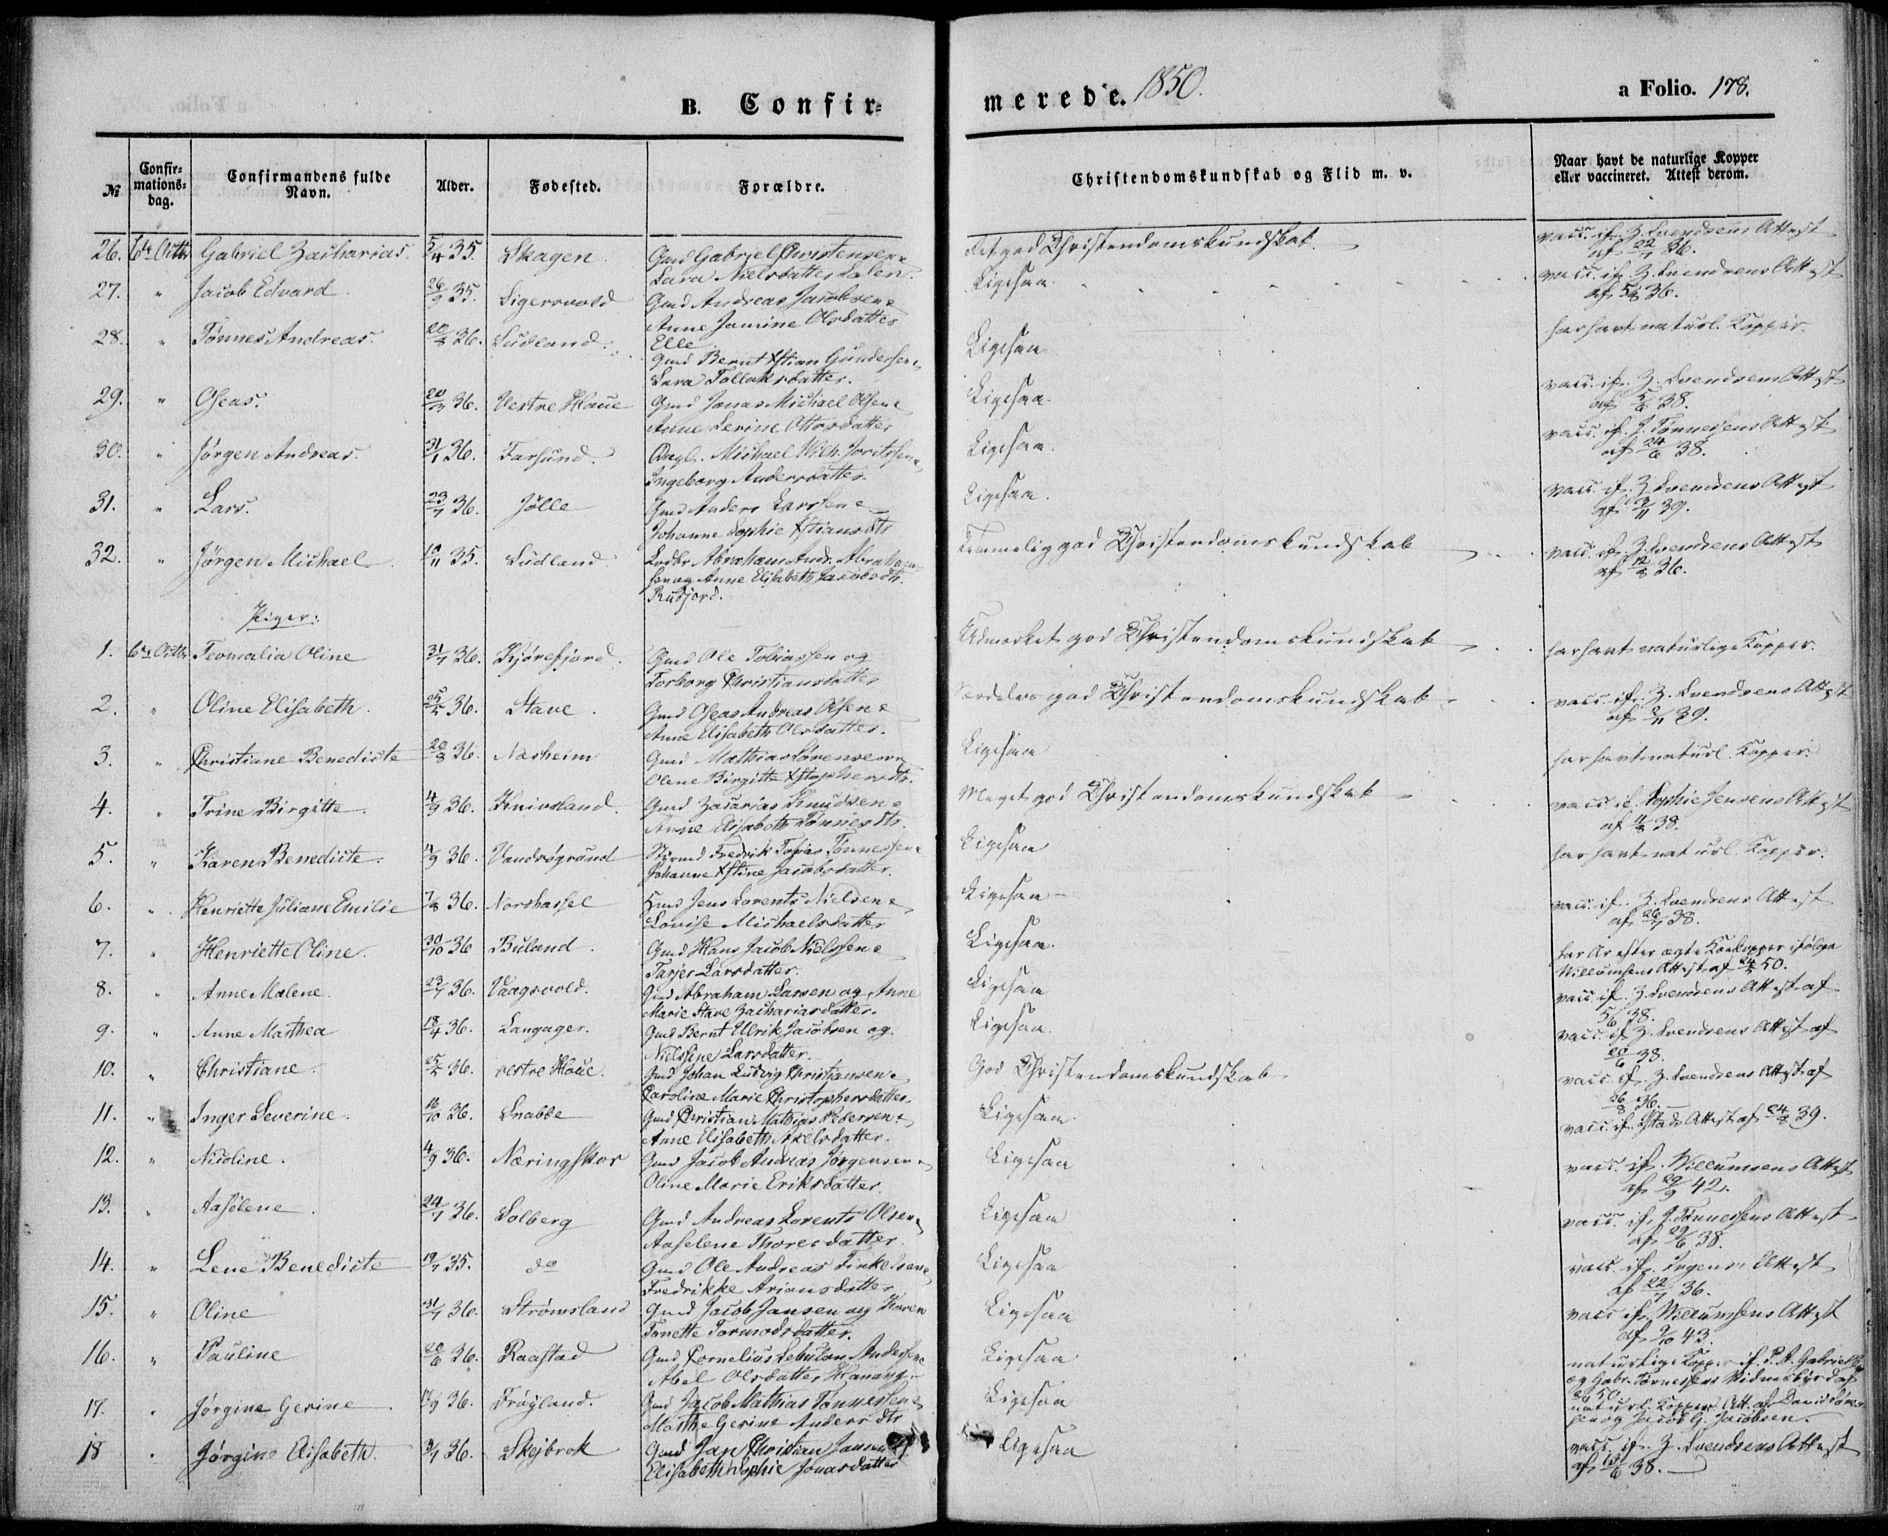 B. Confir-
merede. 1850.
a Folio. 178.
№
Confir-
mations-
dag.
Confirmandens fulde
Navn.
Alder.
Fødested.
Forældre.
Christendomskundskab og Flid m. v.
Naar havt de naturlige Kopper
eller vaccineret. Attest derom.
26. 6te Octbr Gabriel Zacharias. 5/4 35. Skagen. Gmd Gabriel Christensen &
Sara Nielsdatter
Ret god Christendomskundskab.
vacc. if. Z. Svendsens Attest
af 22/7 36.
27. " Jacob Edvard. 26/9 35. Sigersvold Gmd Andreas Jacobsen &
Anne Jomine Olsdatter
Elle
Ligesaa
vacc. if. Z. Svendsens Attest
af 5/8 36.
28. " Tønnes Andreas. 20/3 36. Sudland. Gmd Bernt Xstian Gundersen &
Sara Tollaksdatter.
Ligesaa
har havt naturl. Kopper.
29. " Oseas. 20/3 36. Vestre Haue Gmd Jonas Michael Olsen &
Anne Serine Ottosdatter
Ligesaa
vacc. if. Z. Svendsens Attest
af 5/6 38.
30. " Jørgen Andreas. 31/1 36. Farsund. Michael Wilh.
Ingeborg Andersdatter.
Ligesaa.
vacc. if. J. Tønnesens Attest
af 24/6 38.
31. " Lars. 23/7 36. Jølle Gmd Anders Larssen &
Johanne Sophie Xstiansdtr
Ligesaa.
vacc. if. Z. Svendsens Attest
af 2/11 39.
32. " Jørgen Michael. 10/11 35. Sudland Lods Abraham And. Abraham-
sen og Anne Elisabeth Jacobsdtr.
Rudjord.
Temmelig god Christendomskundskab
vacc. if. Z. Svendsens Attest
af 12/8 36.
Piger:
1. 6te Octbr Teomalia Oline 31/7 36. Kjørefjord. Gmd Ole Tobiassen og
Torborg Christiansdatter
Udmærket god Christendomskundskab
har havt naturlige Kopper.
2. " Oline Elisabeth. 25/2 36. Stave. Gmd Oseas Andreas Olsen &
Anne Elisabeth Olsdatter.
Særdeles god Christendomskundskab
vacc. if. Z. Svendsens Attest
af 2/11 39.
3. " Christiane Benedicte 20/8 36. Nasheim Gmd Mathias Sørensen &
Olene Birgitte Xstophersdtr.
Ligesaa
har havt naturl. Kopper.
4. " Trine Birgitte. 4/9 36. Knivsland. Gmd Zacarias Knudsen &
Anne Elisabeth Tønnesdtr.
Meget god Christendomskundskab
vacc. if. Sophie Jensens Attest
af 11/3 38.
5. " Karen Benedicte. 4/9 36. Vandsøgrund Styrmd Fredrik Tønnessen &
Johanne Xstine Jacobsdatter.
Ligesaa
har havt naturl. Kopper.
6. " Henriette Juliane Emilie 7/8 36. Norshassel Gmd Jens Lorents Nielsen &
Lovise Michaelsdatter
Ligesaa
vacc. if. Z. Svendsens Attest
af 26/7 38.
7. " Henriette Oline. 30/10 36 Buland. Gmd Hans Jacob Nielssen &
Tarjer Larsdatter.
Ligesaa.
har Ar efter ægte Kokopper ifølge
Willumsens Attest af 24/5 50.
8. " Anne Malene. 23/7 36. Vaagsvold. Gmd Abraham Larsen og Anne
Marie Stave Zachariasdatter.
Ligesaa
vacc. if. Z. Svendsens Attest af
5/6 38.
9. " Anne Marthea 18/4 36. Langager. Gmd Bernt Ulrik Jacobsen og
Nielsine Larsdatter.
Ligesaa.
vacc. if. Z. Svendsens Attest af
20/6 38.
10. " Christiane. 25/2 36. vestre Haue. Gmd Johan Ludvig Christiansen &
Caroline Marie Christophersdatter.
God Christendomskundskab
vacc. if. Z. Svendsens Attest af
26/8 36.
11. " Inger Severine. 16/10 36. Snabbe Gmd Christian Mathias Pedersen &
Anne Elisabeth Axelsdatter.
Ligesaa
vacc. if. Stads Attest af 24/2 39.
12. " Nicoline. 4/9 36. Næringskor Gmd Jacob Andreas Jørgensen &
Oline Marie Eriksdatter.
Ligesaa
vacc. if. Willumsens Attest
af 29/9 42.
13. " Aaselene. 24/7 36. Solberg Gmd Andreas Lorents Olsen &
Aaselene Thoresdatter.
Ligesaa
vacc. if. J. Tønnesens Attest
af 29/6 38.
14. " Lene Benedicte 19/7 35. do Gmd Ole Andreas Finkelsen &
Fredrikke Ariansdatter
Ligesaa
vacc. if. Attest
af 22/7 36.
15. " Oline 31/7 36. Strømsland Gmd Jacob Jansen og Karen
Tonette Tormodsdatter.
Ligesaa
vacc. if. Willumsens Attest
af 9/10 43.
16. " Pauline 20/6 36. Raastad Gmd Cornelius Sebulon Andersen &
Abel Olsdatter Hanang.
Ligesaa
naturlige Kopper if. P. A.
og Gabr. Tønnessens Vidnesbyrd af
50.
17. " Jørgine Gerine 17/9 36. Frøyland. Gmd Jacob Mathias Tønnessen &
Marthe Gerine Andersdtr
Ligesaa
naturl. Kopper Att. af David
sen og Jacob G. Jacobsen.
18 " Jørgine Elisabeth. 3/7 36. Skeibrok Gmd Jan Christian Jansen og
Elisabeth Sophie Jonasdatter
Ligesaa
vacc. if. Z. Svendsens Attest
af 15/6 38.